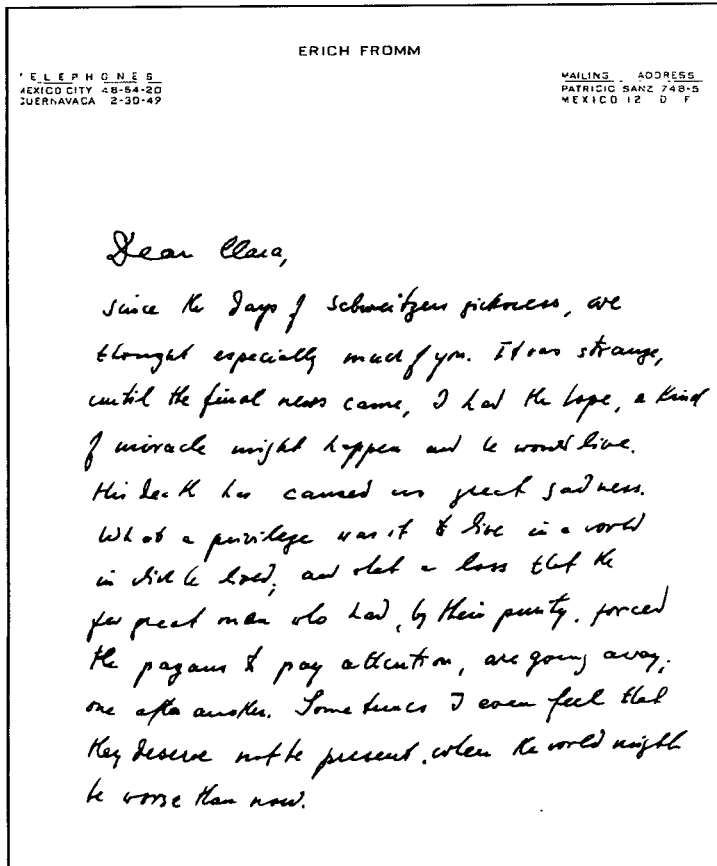 ERICH FROMM
TELEPHONES
MEXICO CITY 48-54-20
CUERNAVACA 2-30-49
MAILING ADDRESS
PATRICIO SANZ 748-5
MEXICO 12 D F
Dear Clara,
since the days of Schweitzers sickness, we
thought especially much of you. It was strange,
until the final news came, I had the hope, a kind
of miracle might happen and he would live.
His death has caused us great sadness.
What a privilege was it to live in a world
in which he lived, and what a loss that the
few great men who had, by their purity, forced
the pagans to pay attention, are going away,
one after another. Sometimes I even feel that
they deserve not be present, when the world might
be worse than now.